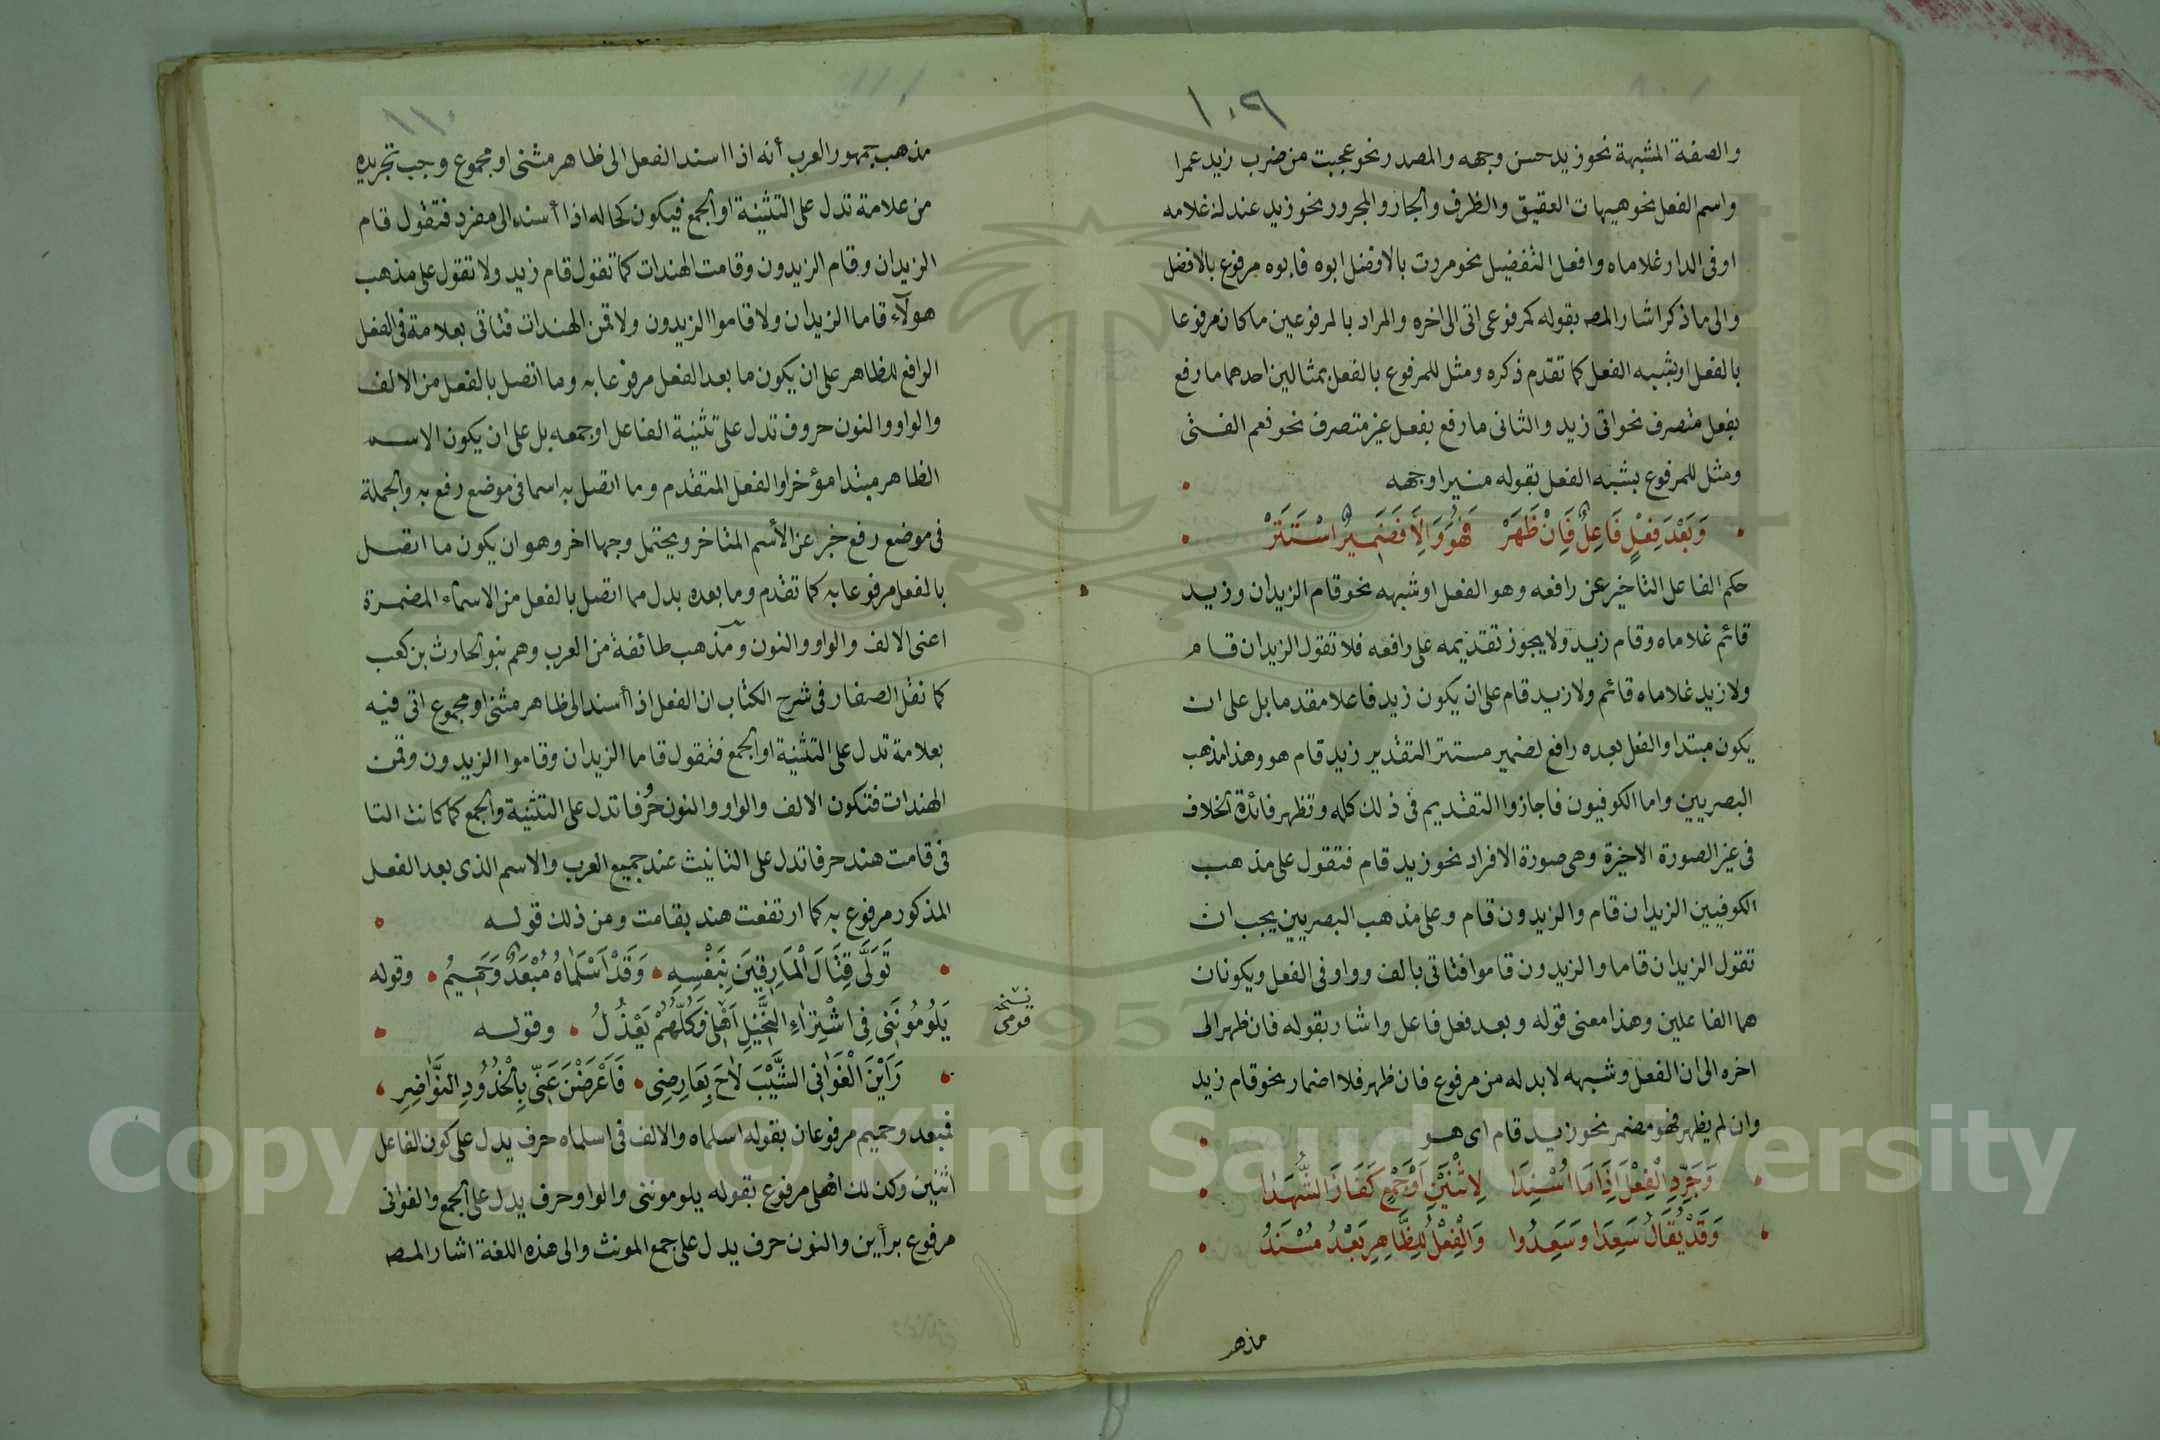 ١٠٩
والصفة المشبهة نحو زيد حسن وجهه والمصدر نحو عجبت من ضرب زيد عمرا
واسم الفعل نحو هيهات العقيق والظرف والجار والمجرور نحو زيد عندك غلامه
او فى الدار غلاماه وافعل التفضيل نحو مررت بالافضل ابوه فابوه مرفوع بالافضل
والى ما ذكر اشار المصه بقوله كمرفوعى اتى الى اخره والمراد بالمرفوعين ما كان مرفوعا
بالفعل او بشبه الفعل كما تقدم ذكره ومثل للمرفوع بالفعل بمثالين احدهما ما رفع
بفعل متصرف نحو اتى زيد والثانى ما رفع بفعل غير متصرف نحو نعم الفتى
ومثل للمرفوع بشبه الفعل بقوله منيرا وجهه
وَبَعْدَ فِعْلٍ فَاعِلٌ فَاِنْ ظَهَرْ فَهُوَ وَاِلَّا فَضَمِيرٌ اسْتَتَرْ
حكم الفاعل التاخير عن رافعه وهو الفعل او شبهه نحو قام الزيدان وزيد
قائم غلاماه وقام زيد ولا يجوز تقديمه على رافعه فلا تقول الزيدان قام
ولا زيد غلاماه قائم ولا زيد قام على ان يكون زيد فاعلا مقدما بل على ان
يكون مبتدا والفعل بعده رافع لضمير مستتر التقدير زيد قام هو وهذا مذهب
البصريين واما الكوفيون فاجازوا التقديم فى ذلك كله وتظهر فائدة الخلاف
فى غير الصورة الاخيرة وهى صورة الافراد نحو زيد قام فتقول على مذهب
الكوفيين الزيدان قام والزيدون قام وعلى مذهب البصريين يجب ان
تقول الزيدان قاما والزيدون قاموا فتاتى بالف وواو فى الفعل ويكونان
هما الفاعلين وهذا معنى قوله وبعد فعل فاعل واشار بقوله فان ظهر الى
اخره الى ان الفعل وشبهه لابد له من مرفوع فان ظهر فلا اضمار نحو قام زيد
وان لم يظهر فهو مضمر نحو زيد قام اى هو
وَجَرِّدِ الْفِعْلَ اِذَا مَا اُسْنِدَا لِاثْنَيْنِ اَوْ جَمْعٍ كَفَازَ الشُّهَدَا
وَقَدْ يُقَالُ سَعِدَا وَسَعِدُوا وَالْفِعْلُ لِلظَّاهِرِ بَعْدُ مُسْنَدُ
مذهب
١١٠
مذهب جمهور العرب أنه اذا اسند الفعل الى ظاهر مثنى او مجموع وجب تجريده
من علامة تدل على التثنية او الجمع فيكون كحاله اذا أسند الى مفرد فتقول قام
الزيدان وقام الزيدون وقامت الهندات كما تقول قام زيد ولا تقول على مذهب
هولآء قاما الزيدان ولا قاموا الزيدون ولا قمن الهندات فتاتى بعلامة فى الفعل
الرافع للظاهر على ان يكون ما بعد الفعل مرفوعا به وما اتصل بالفعل من الالف
والواو والنون حروف تدل على تثنية الفاعل او جمعه بل على ان يكون الاسم
الظاهر مبتدا مؤخرا والفعل المتقدم وما اتصل به اسما فى موضع رفع به والجملة
فى موضع رفع خبر عن الأسم المتاخر ويحتمل وجها اخر وهو ان يكون ما اتصل
بالفعل مرفوعا به كما تقدم وما بعده بدل مما اتصل بالفعل من الاسماء المضمرة
اعنى الالف والواو والنون ومذهب طائفة من العرب وهم بنو الحارث بن كعب
كما نقل الصفار فى شرح الكتاب ان الفعل اذا أسند الى ظاهر مثنى او مجموع اتى فيه
بعلامة تدل على التثنية او الجمع فتقول قاما الزيدان وقاموا الزيدون وقمن
الهندات فتكون الالف والواو والنون حُرُفا تدل على التثنية والجمع كما كانت التا
فى قامت هند حرفا تدل على التانيث عند جميع العرب والاسم الذى بعد الفعل
المذكور مرفوع به كما ارتفعت هند بقامت ومن ذلك قوله
تَوَلَّى قِتَالَ الْمَارِقِينَ بِنَفْسِهِ وَقَدْ اَسْلَمَاهُ مُبْعَدٌ وَحَمِيمُ وقوله
يَلُومُونَنِى فِى اشْتِرَاءِ النَّخِيلِ اَهْلِى فَكُلُّهُمُ يَعْذُلُ وقوله
نسخة
قومى
رَاَيْنَ الْغَوَانِى الشَّيْبَ لَاحَ بِعَارِضِى فَاَعْرَضْنَ عَنِّى بِالْخُدُودِ النَّوَاضِرِ
فمبعد وحميم مرفوعان بقوله اسلماه والالف فى اسلماه حرف يدل على كون الفاعل
اثنين وكذلك اهلى مرفوع بقوله يلوموننى والواو حرف يدل على الجمع والغوانى
مرفوع برأين والنون حرف يدل على جمع المونث والى هذه اللغة اشار المصه
1957
Copyright © King Saud University